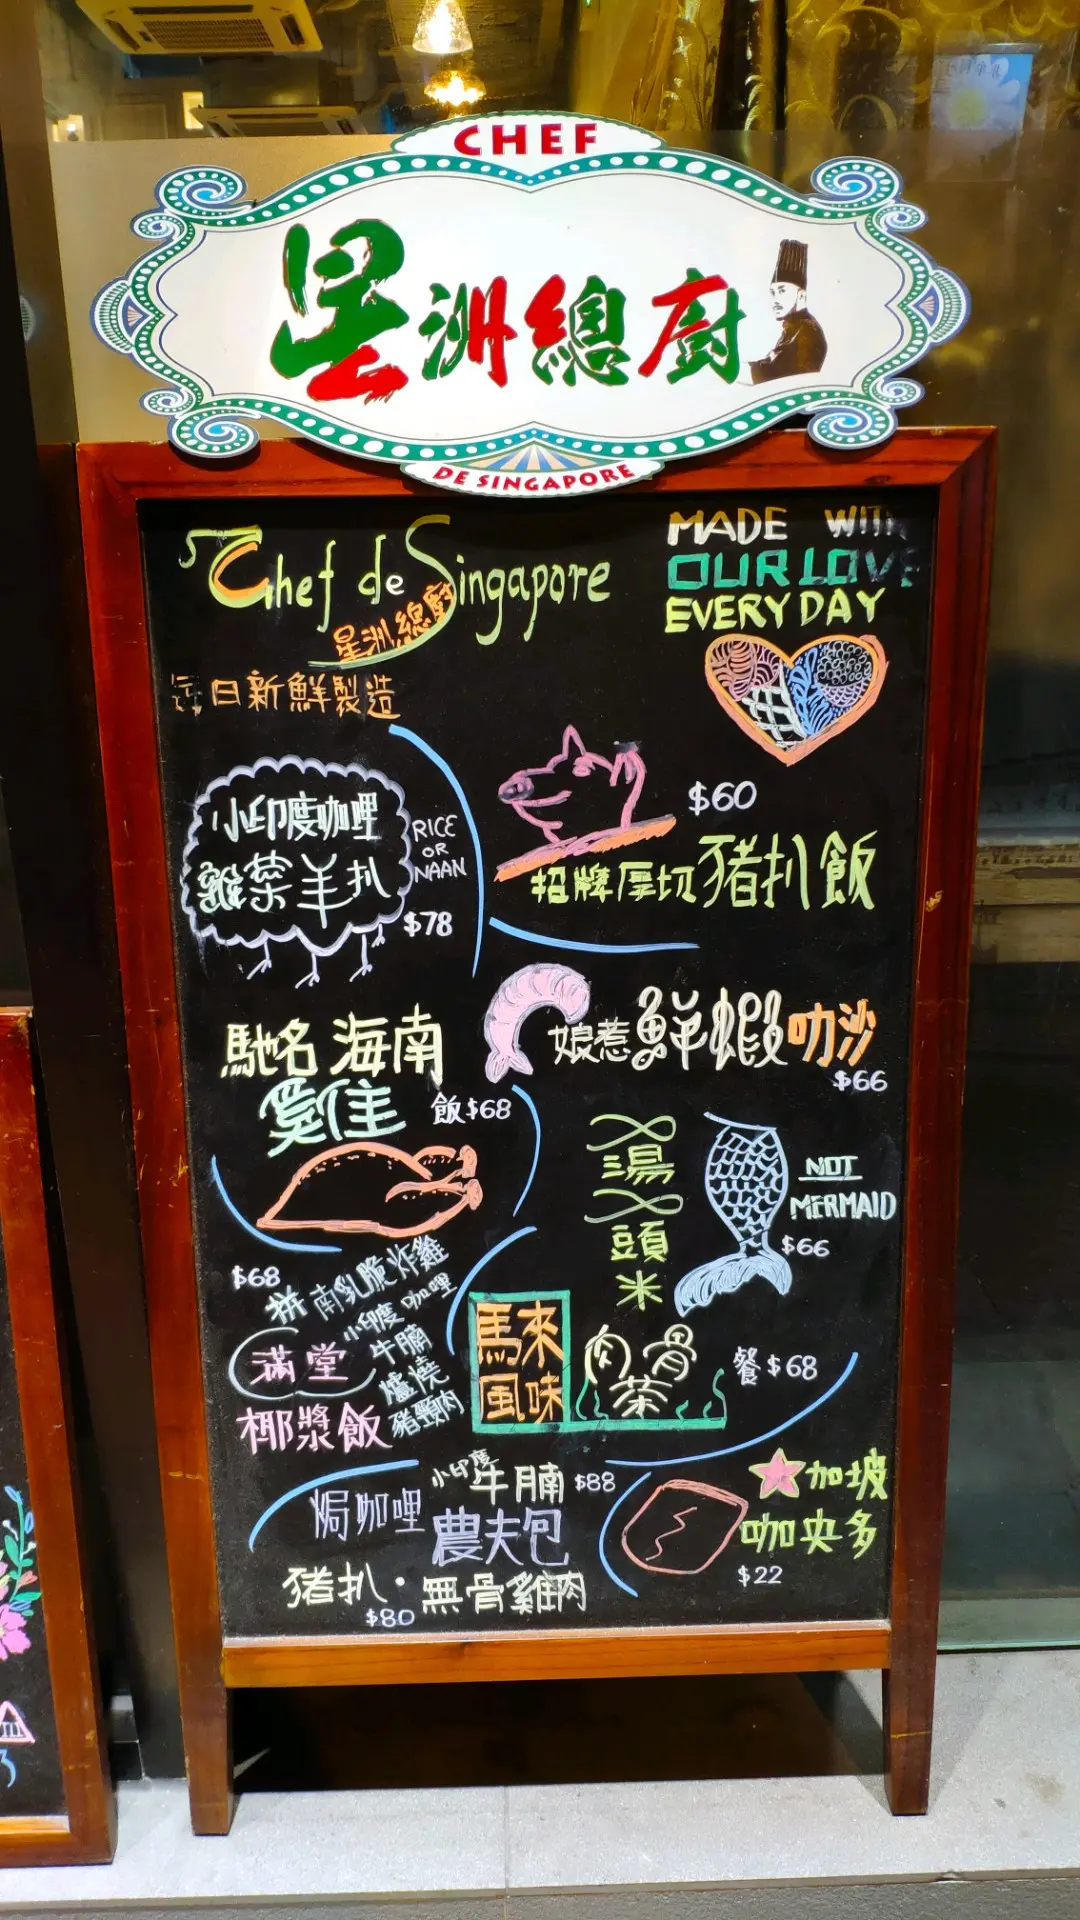 CHEF
星洲總廚
DE SINGAPORE
Chef de Singapore
星洲總廚
MADE WITH
OUR LOVE
EVERYDAY
每日新鮮製造
小印度咖哩
雜菜羊扒
RICE
OR
NAAN
$78
$60
招牌厚切豬扒飯
馳名海南
雞
飯$68
娘惹鮮蝦叻沙
$66
湯
頭
米
NOT
MERMAID
$66
$68
拼南乳脆炸雞
小印度咖哩
牛腩
爐燒
豬頸肉
滿堂
椰漿飯
馬來
風味
肉骨
茶
餐$68
焗咖哩
小印度
牛腩$88
農夫包
豬扒·無骨雞肉
$80
加坡
咖央多
$22